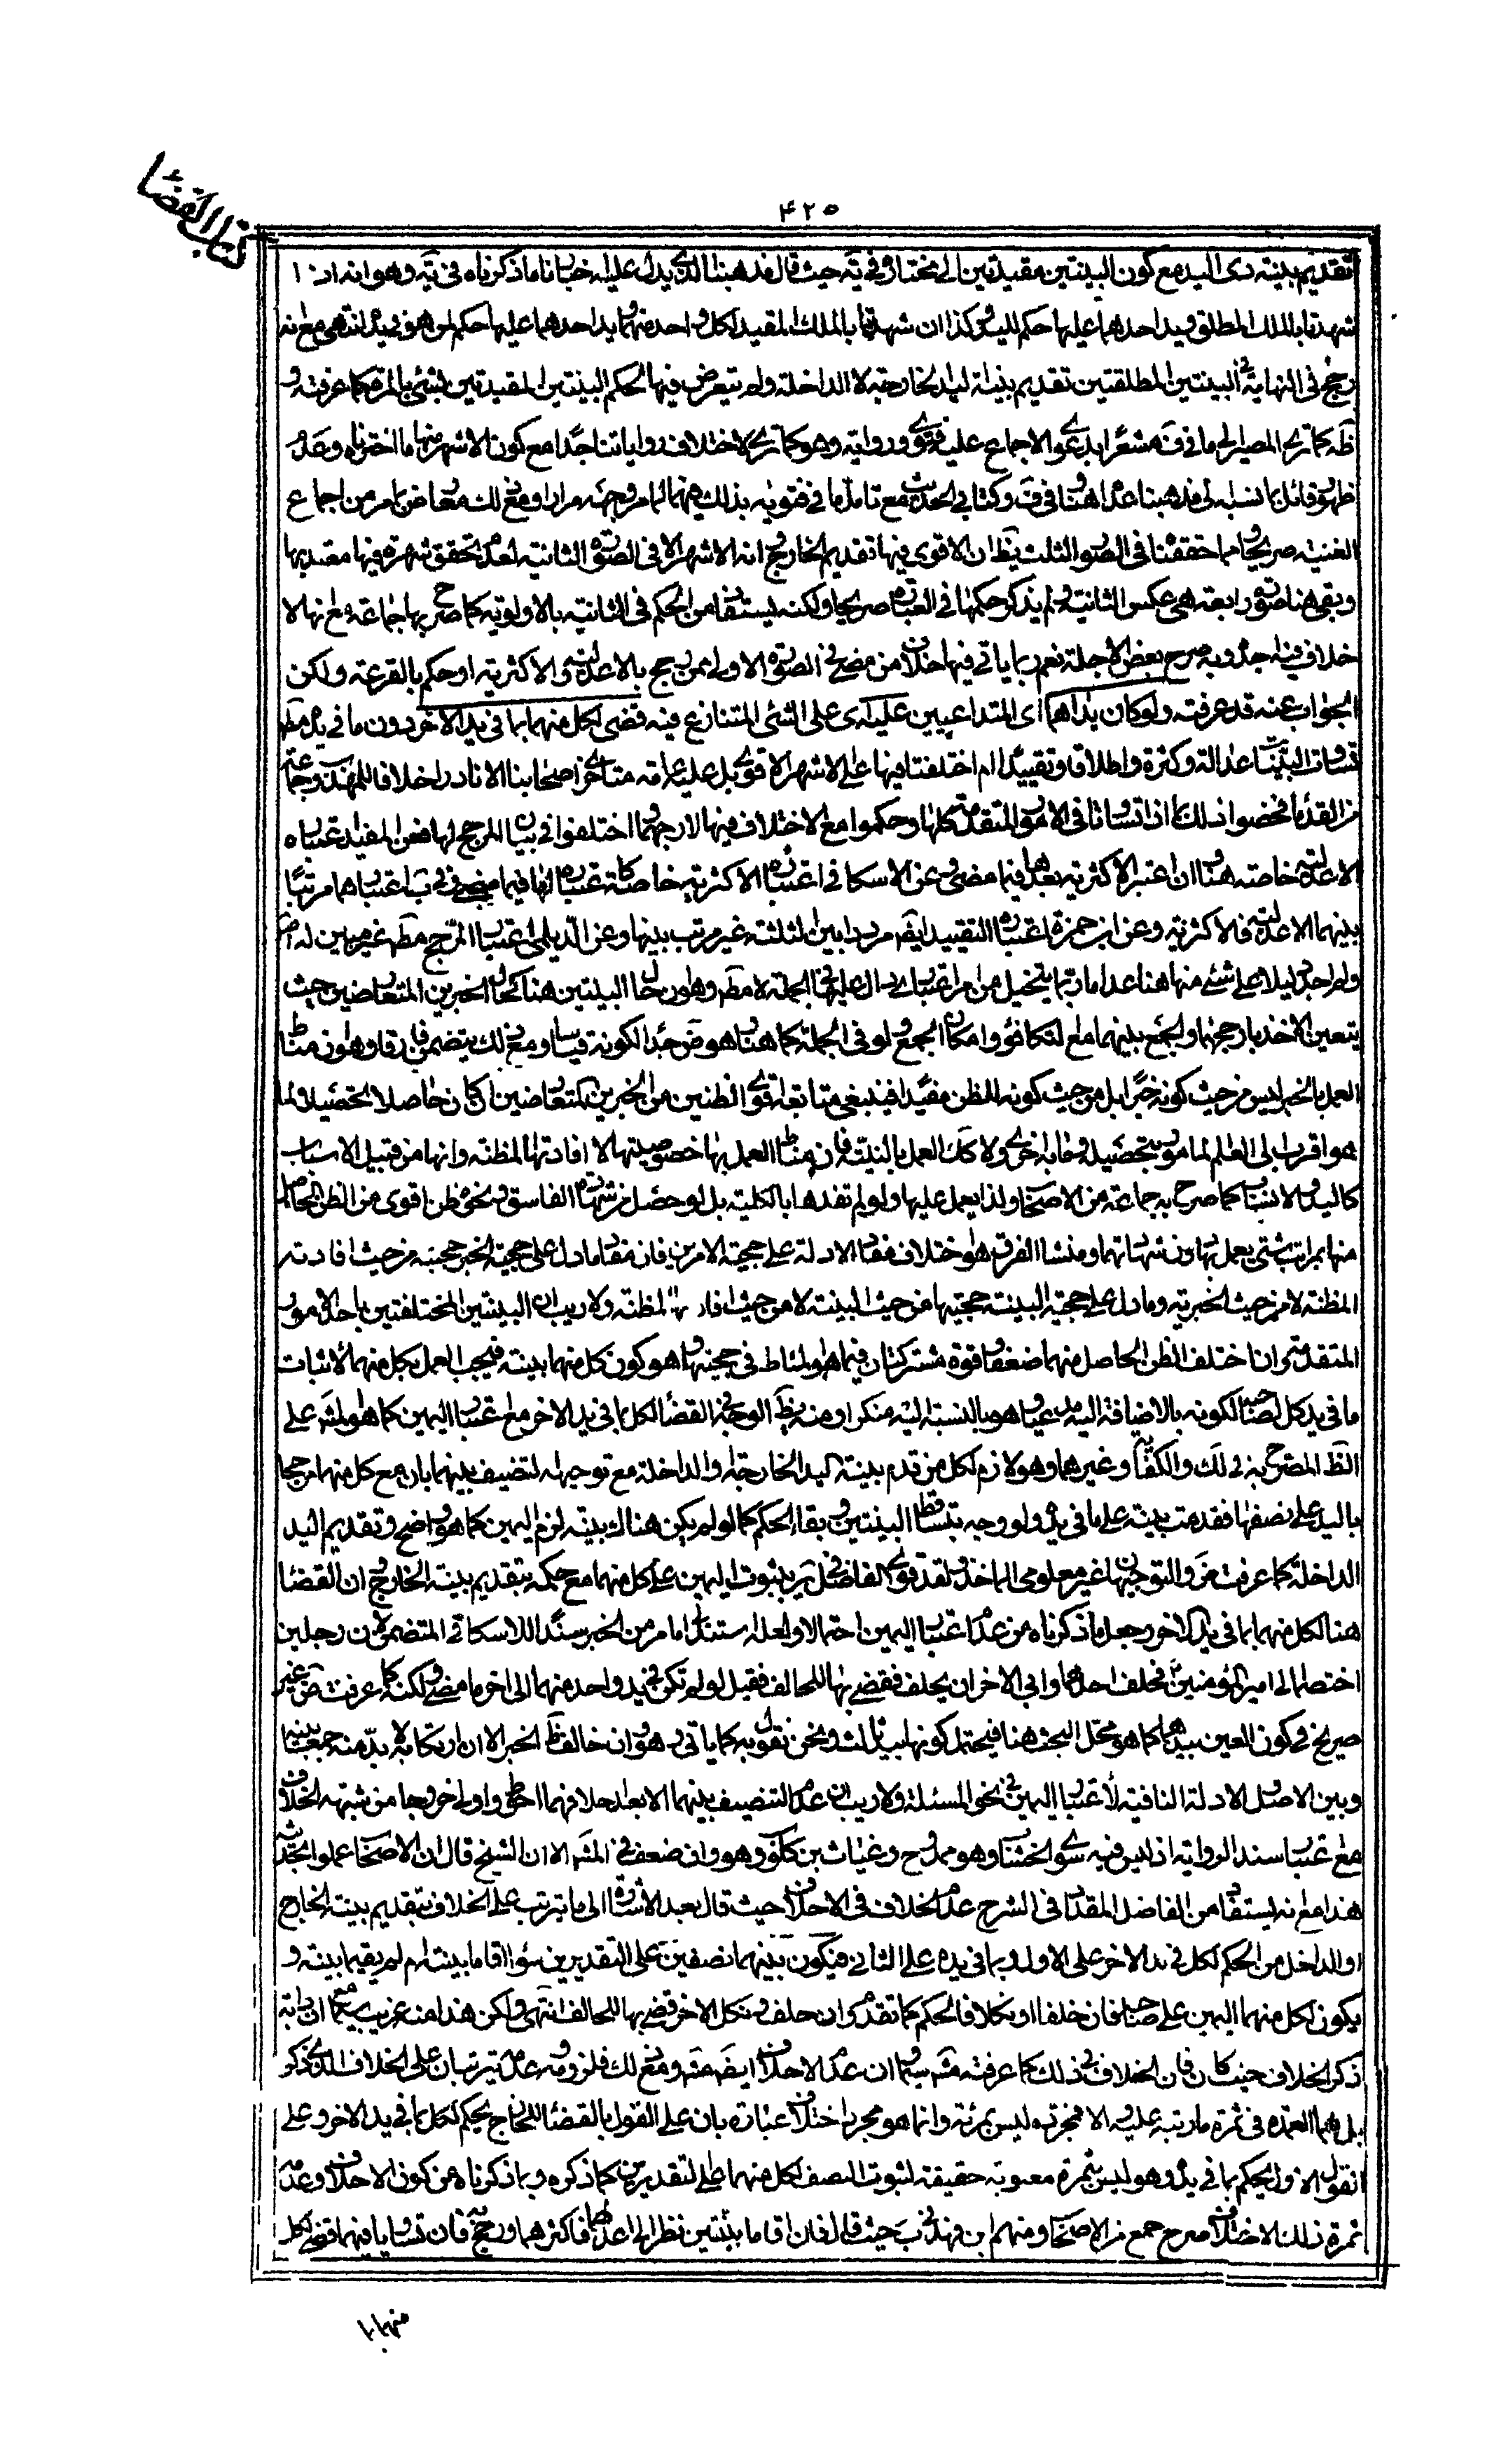 ٤٢٥
كتاب القضاء
تقديم بينة ذى اليد مع كون البينتين مقيدتين الى مختاره فى يه حيث قال مذهبنا الذى يدل عليه اخبارنا ما ذكرناه فى يه وهو انه اذا
شهدتا بالملك المطلق ويد احدهما عليها حكم لليد وكذا ان شهدتا بالملك المقيد لكل واحد منهما ويد احدهما عليها حكم لمن هو فى يده انتهى مع انه
رجح فى النهاية فى البينتين المطلقتين تقديم بينة اليد الخارجة لا الداخلة ولم يتعرض فيها لحكم البينتين المقيدتين بشئ بالمرة كما عرفته و
ظه كما ترى المصير الى ما فى ف مشعرا بدعوى الاجماع عليه فتوى ورواية وهو كما ترى لاختلاف رواياتنا جدا مع كون الاشهر منها ما اخترناه وعدم
ظهور قائل بما نسبه الى مذهبنا عداه هنا وفى ف وكتابى الحديث مع تامل ما فى فتويه بذلك فيهما لما مر وجهه مرارا ومع ذلك معارض بما مر من اجماع
الغنية صريحا ومما حققناه فى الصور الثلث يظ ان الاقوى فيها تقديم الخارج وانه الاشهر الا فى الصورة الثانية لعدم تحقق شهرة فيها معتد بها
وبقى هنا صورة رابعة هى عكس الثانية ولم يذكر حكمها فى العبارة صريحا ولكنه يستفاد من الحكم فى الثانية بالاولوية كما صرح بها جماعة مع انها لا
خلاف فيه اجده وبه صرح بعض الاجلة نعم ربما ياتى فيها خلاف من مضى فى الصورة الاولى ممن رجح بالاعدلية والاكثرية او حكم بالقرعة ولكن
الجواب عنه قد عرفته ولو كان يداهما اى المتداعيين عليه اى على الشئ المتنازع فيه قضى لكل منهما بما فى يد الاخر دون ما فى يده مط
تساوت البينتان عدالة وكثرة واطلاقا وتقييدا ام اختلفتا فيها على الاشهر الاقوى بل عليه عامة متاخرى اصحابنا الا نادرا خلافا للمهذب وجماعة
من القدماء فخصوا ذلك بما اذا تساوتا فى الامور المتقدمة كلها وحكموا مع الاختلاف فيها لارجحها واختلفوا فى بيان المرجح لها فعن المفيد اعتباره
الاعدلية خاصة هنا وان اعتبر الاكثرية بعدها فيما مضى وعن الاسكافى اعتباره الاكثرية خاصة كاعتباره اياها فيما مضى وفى ب اعتبارهما مرتبا
بينهما الاعدلية فالاكثرية وعن ابن حمزة اعتباره التقييد ايضا مرددا بين الثلثة غير مرتب بينها وعن الديلمى اعتبار المرجح مط غير مبين له
ولم اجد دليلا على شئ منها هنا عدا ما ربما يتخيل من مراعاة اعتبار على الجملة لا مط وهو ان حال البينتين هنا كحال الخبرين المتعارضين حيث
يتعين الاخذ بارجحهما والجمع بينهما مع التكافؤ وامكان الجمع ولو فى الجملة كما هنا وهو ضعيف جدا لكونه قياسا ومع ذلك يتضمن فارقا وهو ان مناط
العمل بالخبر ليس من حيث كونه خبرا بل من حيث كونه للظن مفيدا فينبغى متابعة اقوى الظنين من الخبرين المتعارضين ان كان حاصلا وتحصيل ما
هو اقرب الى العلم المامور بتحصيله ومما به احرى ولا كك العمل بالبينة فان مناط العمل بها خصوصيتها لا افادتها المظنة وانها من قبيل الاسباب
كاليد والانساب كما صرح به جماعة من الاصحاب ولذا يعمل عليها ولو لم تفدها بالكلية بل لو حصل من شهادة الفاسق ونحوه ظن اقوى من الظن الحاصل
منها بمراتب شتى يعمل بها دون شهادتهما ومنشا الفرق هو اختلاف مفاد الادلة على حجية الامرين فان مفاد ما دل على حجية الخبر حجيته من حيث افادته
المظنة لا من حيث الخبرية وما دل على حجية البينة حجيتها من حيث البينة لا من حيث افادتها المظنة ولا ريب ان البينتين المختلفتين باحد الامور
المتقدمة وان اختلف الظن الحاصل منهما ضعفا وقوة مشتركتان فيما هو المناط فى حجيتها وهو كون كل منهما بينة فيجب العمل بكل منهما لاثبات
ما فى يد كل لصاحبه لكونه بالاضافة اليه مدعيا وهو بالنسبة اليه منكرا ومنه يظ الوجه فى القضاء لكل بما فى يد الاخر مع اعتبار اليمين كما هو المشهور على
الظ المصرح به فى لك والكفاية وغيرهما وهو لازم لكل من قدم بينة اليد الخارجة او الداخلة مع توجيه التنصيف بينهما بان مع كل منهما مرجحا
باليد على نصفها فقدمت بينته على ما فى يده ولو وجه بتساقط البينتين وبقاء الحكم كما لو لم يكن هناك بينة لزم اليمين كما هو واضح وتقديم اليد
الداخلة كما عرفت من والتوجيهان غير معلومى الماخذ ولقد قوى الفاضل فى ير ثبوت اليمين على كل منهما مع حكمه بتقديم بينة الخارج وان القضاء
هنا لكل منهما بما فى يد الاخر وجعل ما ذكرناه من عدم اعتبار اليمين احتمالا ولعله استنادا لما مر من الخبر سندا للاسكافى المتضمن لان رجلين
اختصما الى امير المؤمنين فحلف احدهما وابى الاخر ان يحلف فقضى بها للحالف فقيل لو لم تكن فى يد واحد منهما الى اخر ما مضى ولكنه كما عرفت ض غير
صريح فى كون العين بيدهما كما هو محل البحث هنا فيحتمل كونها بيد ثالث ونحن نقول به كما ياتى وهو وان خالف ظ الخبر الا ان ارتكابه لا بد منه جمعا بينه
وبين الاصل والادلة النافية لاعتبار اليمين فى نحو المسئلة ولا ريب ان عدم التنصيف بينهما الا بعد حلافهما احوط واولى خروجا من شبهة الخلاف
مع اعتبار سند الرواية اذ ليس فيه سوى الخشاب وهو ممدوح وغياث بن كلوب وهو وان ضعف فى المشهور الا ان الشيخ قال ان الاصحاب عملوا بحديثه
هذا مع انه يستفاد من الفاضل المقداد فى الشرح عدم الخلاف فى الاحلاف حيث قال بعد الاشارة الى ما يترتب على الخلاف بتقديم بينة الخارج
او الداخل من الحكم لكل فى يد الاخر على الاول وبما فى يده على الثانى فيكون بينهما نصفين على التقديرين سواء اقاما بينة ام لم يقيما بينة و
يكون لكل منهما اليمين على صاحبه فان حلفا او نكلا فالحكم كما تقدم وان حلف ونكل الاخر قضى بها للحالف انتهى ولكن هذا منه غريب سيما انه
ذكر الخلاف حيث كان فان الخلاف فى ذلك كما عرفته مشهور سيما وان عدم الاحلاف ايضا منه ومع ذلك فلزومه وعدمه يترتبان على الخلاف الذى ذكر
بل هما العمدة فى ثمرة ما رتبه عليه والا فمجرده ليس بثمرة وانما هو مجرد اختلاف عبارة بان على القول بالقضاء للخارج يحكم لكل بما فى يد الاخر وعلى
القول الاول يحكم بما فى يده وهو ليس ثمرة معنوية حقيقة لثبوت النصف لكل منهما على التقديرين كما ذكره وبما ذكرناه من كون الاحلاف وعدمه
ثمرة ذلك الاختلاف صرح جمع من الاصحاب ومنهم ابن فهد فى ب حيث قال فان اقاما بينتين نظر الى اعدلهما فاكثرهما ورجح به فان تساويا فيهما قضى لكل
منهما بما